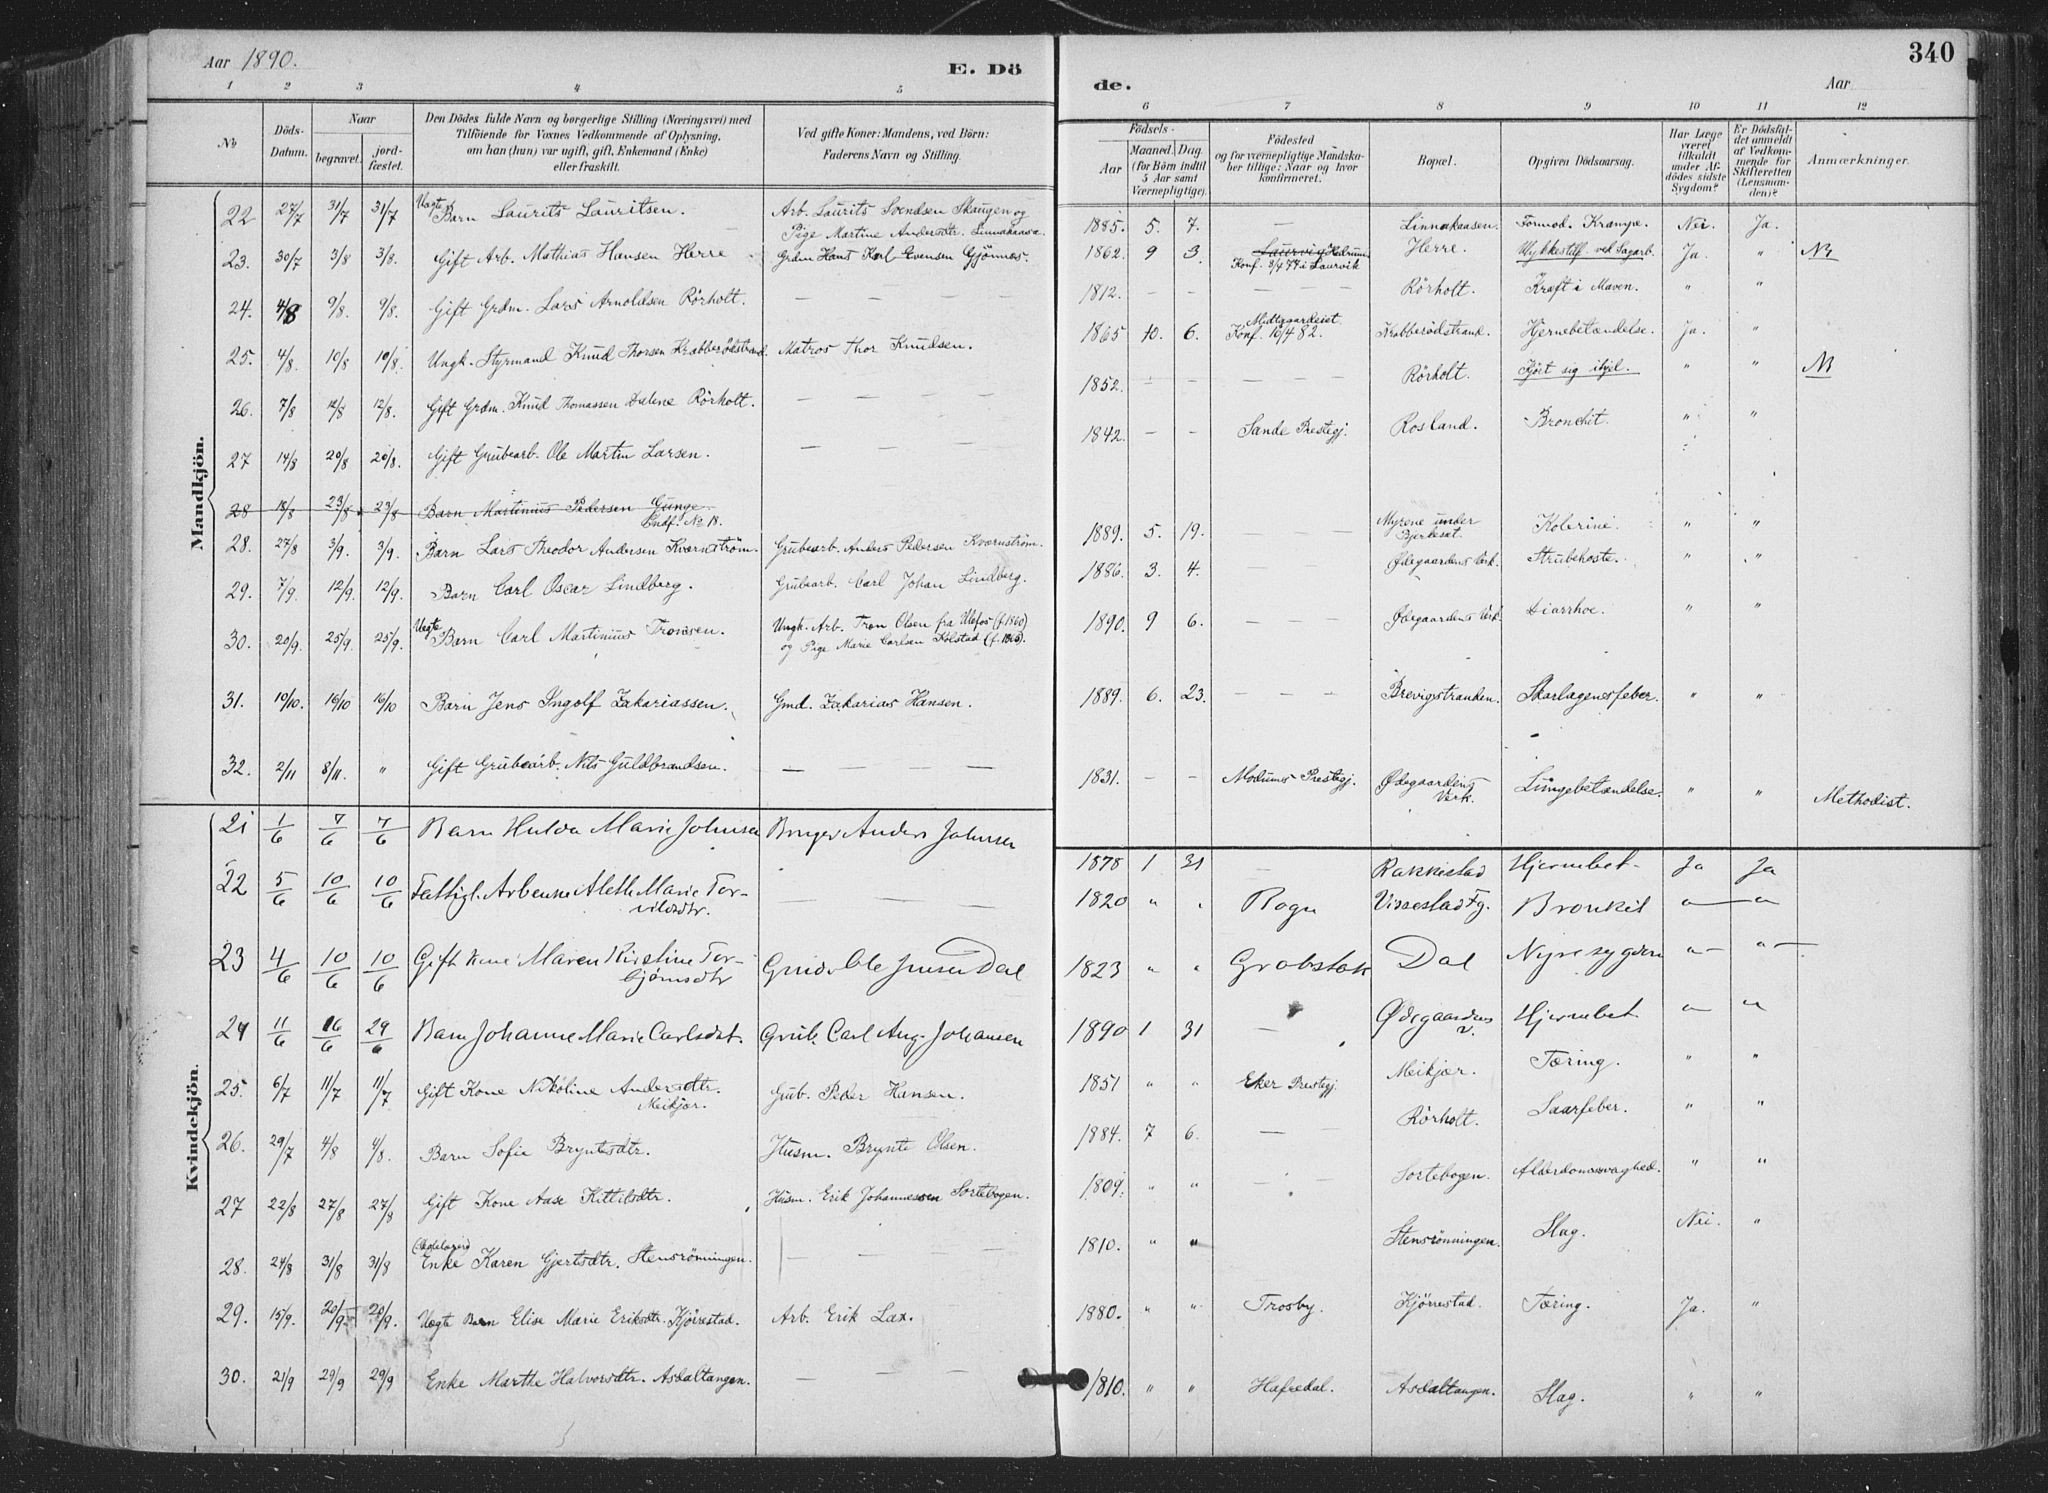 Aar 1890.
E. Dö
de.
Aar
340
1 2 3 4 5 6 7 8 9 10 11 12
No
Döds-Datum.
Naar
begravet.
jord-fæstet.
Den Dödes fulde Navn og borgerlige Stilling (Næringsvei) med
Tilföiende for Voxnes Vedkommende af Oplysning,
om han (hun) var ugift, gift, Enkemand (Enke)
eller fraskilt.
Ved gifte Koner: Mandens, ved Börn:
Faderens Navn og Stilling.
Födsels-
Aar
Maaned. Dag.
(for Börn indtil
5 Aar samt
Værnepligtige).
Födested
og for værnepligtige Mandska-
ber tillige: Naar og hvor
konfirmeret.
Bopæl.
Opgiven Dödsaarsag.
Har Læge
været
tilkaldt
under Af-
dödes sidste
Sygdom?
Er Dödsfal-
det anmeldt
af Vedkom-
mende for
Skifteretten
(Lensman-
den)?
Anmærkninger.
Mandkjön.
22 27/7 31/7 31/7 Uægte Barn Laurits Lauritsen. Arb. Laurits Svendsen Skaugen og
Pige Martine Andersdtr. Linnakaasa. 1885. 5. 7. — Linnakaasen. Formod. Krampe. Nei. Ja.
23. 30/7 3/8 3/8. Gift Arb. Mathias Hansen Herre Grdm Hans Karl Evensen Gjönnes. 1862. 9 3. Laurvig Hedrum Konf. 3/4 77 i Laurvik Herre. Ulykkestilf. ved Sagarb. Ja. " NB
24. 4/8 9/8. 9/8. Gift Grdm. Lars Arnoldsen Rörholt. — — — 1812. — — — — — Rörholt. Kræft i Maven. " "
25. 4/8. 10/8 10/8. Ungk. Styrmand Knud Thorsen Krabberödstrand. Matros Thor Knudsen. 1865 10. 6. Midtgaardeiet. Konf. 16/4 82. Krabberödstrand. Hernebetændelse. Ja. "
26. 7/8 12/8 12/8. Gift Grdm. Knud Thomassen Dalene Rörholt. — — — 1852. — — — — — Rörholt. Kjört sig ihjel. " " NB
27 14/8 20/8 20/8. Gift Grubearb. Ole Martin Larsen. — — 1842. — — Sande Prestegj. Rosland. Bronchit. " "
28 18/8 23/8 23/8 Barn Martinius Pedersen Gunge
Indf. No 18.
28. 27/8 3/9. 3/9. Barn Lars Theodor Andersen Kværnström. Grubearb. Anders Pedersen Kværnström. 1889. 5. 19. — — — Myrene under Bjerkeset. Kolerine. " "
29. 7/9. 12/9. 12/9. Barn Carl Oscar Lindberg. Grubearb. Carl Johan Lindberg. 1886. 3. 4. — — — Ødegaardens Verk. Strubehoste. " "
30. 20/9. 25/9. 25/9. Uægte Barn Carl Martinius Tronsen. Ungk. Arb. Tron Olsen fra Ulefos (f. 1860)
og Pige Marie Carlsen Kolstad 1890. 9 6. — — — Ødegaardens Verk. Diarrhoe. " "
31. 10/10. 16/10 16/10 Barn Jens Ingolf Zakariassen. Gmd. Zakarias Hansen. 1889. 6. 23. — — — Brevigstranden. Skarlagensfeber. " "
32. 2/11 8/11. " Gift Grubearb. Nils Guldbrandsen. — — — 1831. — — Modums Prestegj. Ødegaardens Verk. Lungebetændelse. " " Methodist.
Kvindekjön.
21 1/6 7/6 7/6 Barn Hulda Marie Johnsen Bruger Anders Johnsen 1878 1 31 — Rakkestad Hjernebet. Ja Ja
22 5/6 10/6 10/6 Fattigl. Arbenke Aleth Marie Tor-
vildsdtr. — — — 1820 " " Rogn Vissestad Fg. Bronkit " — "
23 4/6 10/6 10/6 Gift Kone Maren Kirstine Tor-
björnsdtr Grdbr Ole Jensen Dal 1823 " " Grobstok Dal Nyresygdom " — " —
24 11/6 16/6 29/6 Barn Johanne Marie Carlsdat. Grub. Carl Aug. Johansen 1890 1 31 — Ødegaardens V. Hjernebet " — "
25. 6/7 11/7 11/7 Gift Kone Nikoline Andersdtr.
Meikjær. Grub. Peder Hansen. 1851 " " Eker Prestegj. Meikjær. Tæring. " "
26. 29/7 4/8 4/8. Barn Sofie Bryntesdtr. Husm. Brynte Olsen. 1884. 7 6. — — Rörholt. Saarfeber. " "
27 22/8 27/8 27/8 Gift Kone Aase Kittilsdtr. Husm. Erik Johannessen Sortebogen. 1809. " " — — Sortebogen. Alderdomssvaghed. " "
28. 24/8 31/8 31/8 Enke Karen Gjertsdtr. Stensrönningen. — — — 1810. " " Stensrönningen. Slag. Nei. "
29. 15/9. 20/9. 20/9. Uægte Barn Elise Marie Eriksdtr. Kjörrestad. Arb. Erik Lax. 1880. " " Trosby. Kjörrestad. Tæring. Ja. "
30. 21/9 29/9 29/9 Enke Marthe Halvorsdtr. Asdaltangen. — — — 1810. " " Hafredal. Asdaltangen. Slag. " "